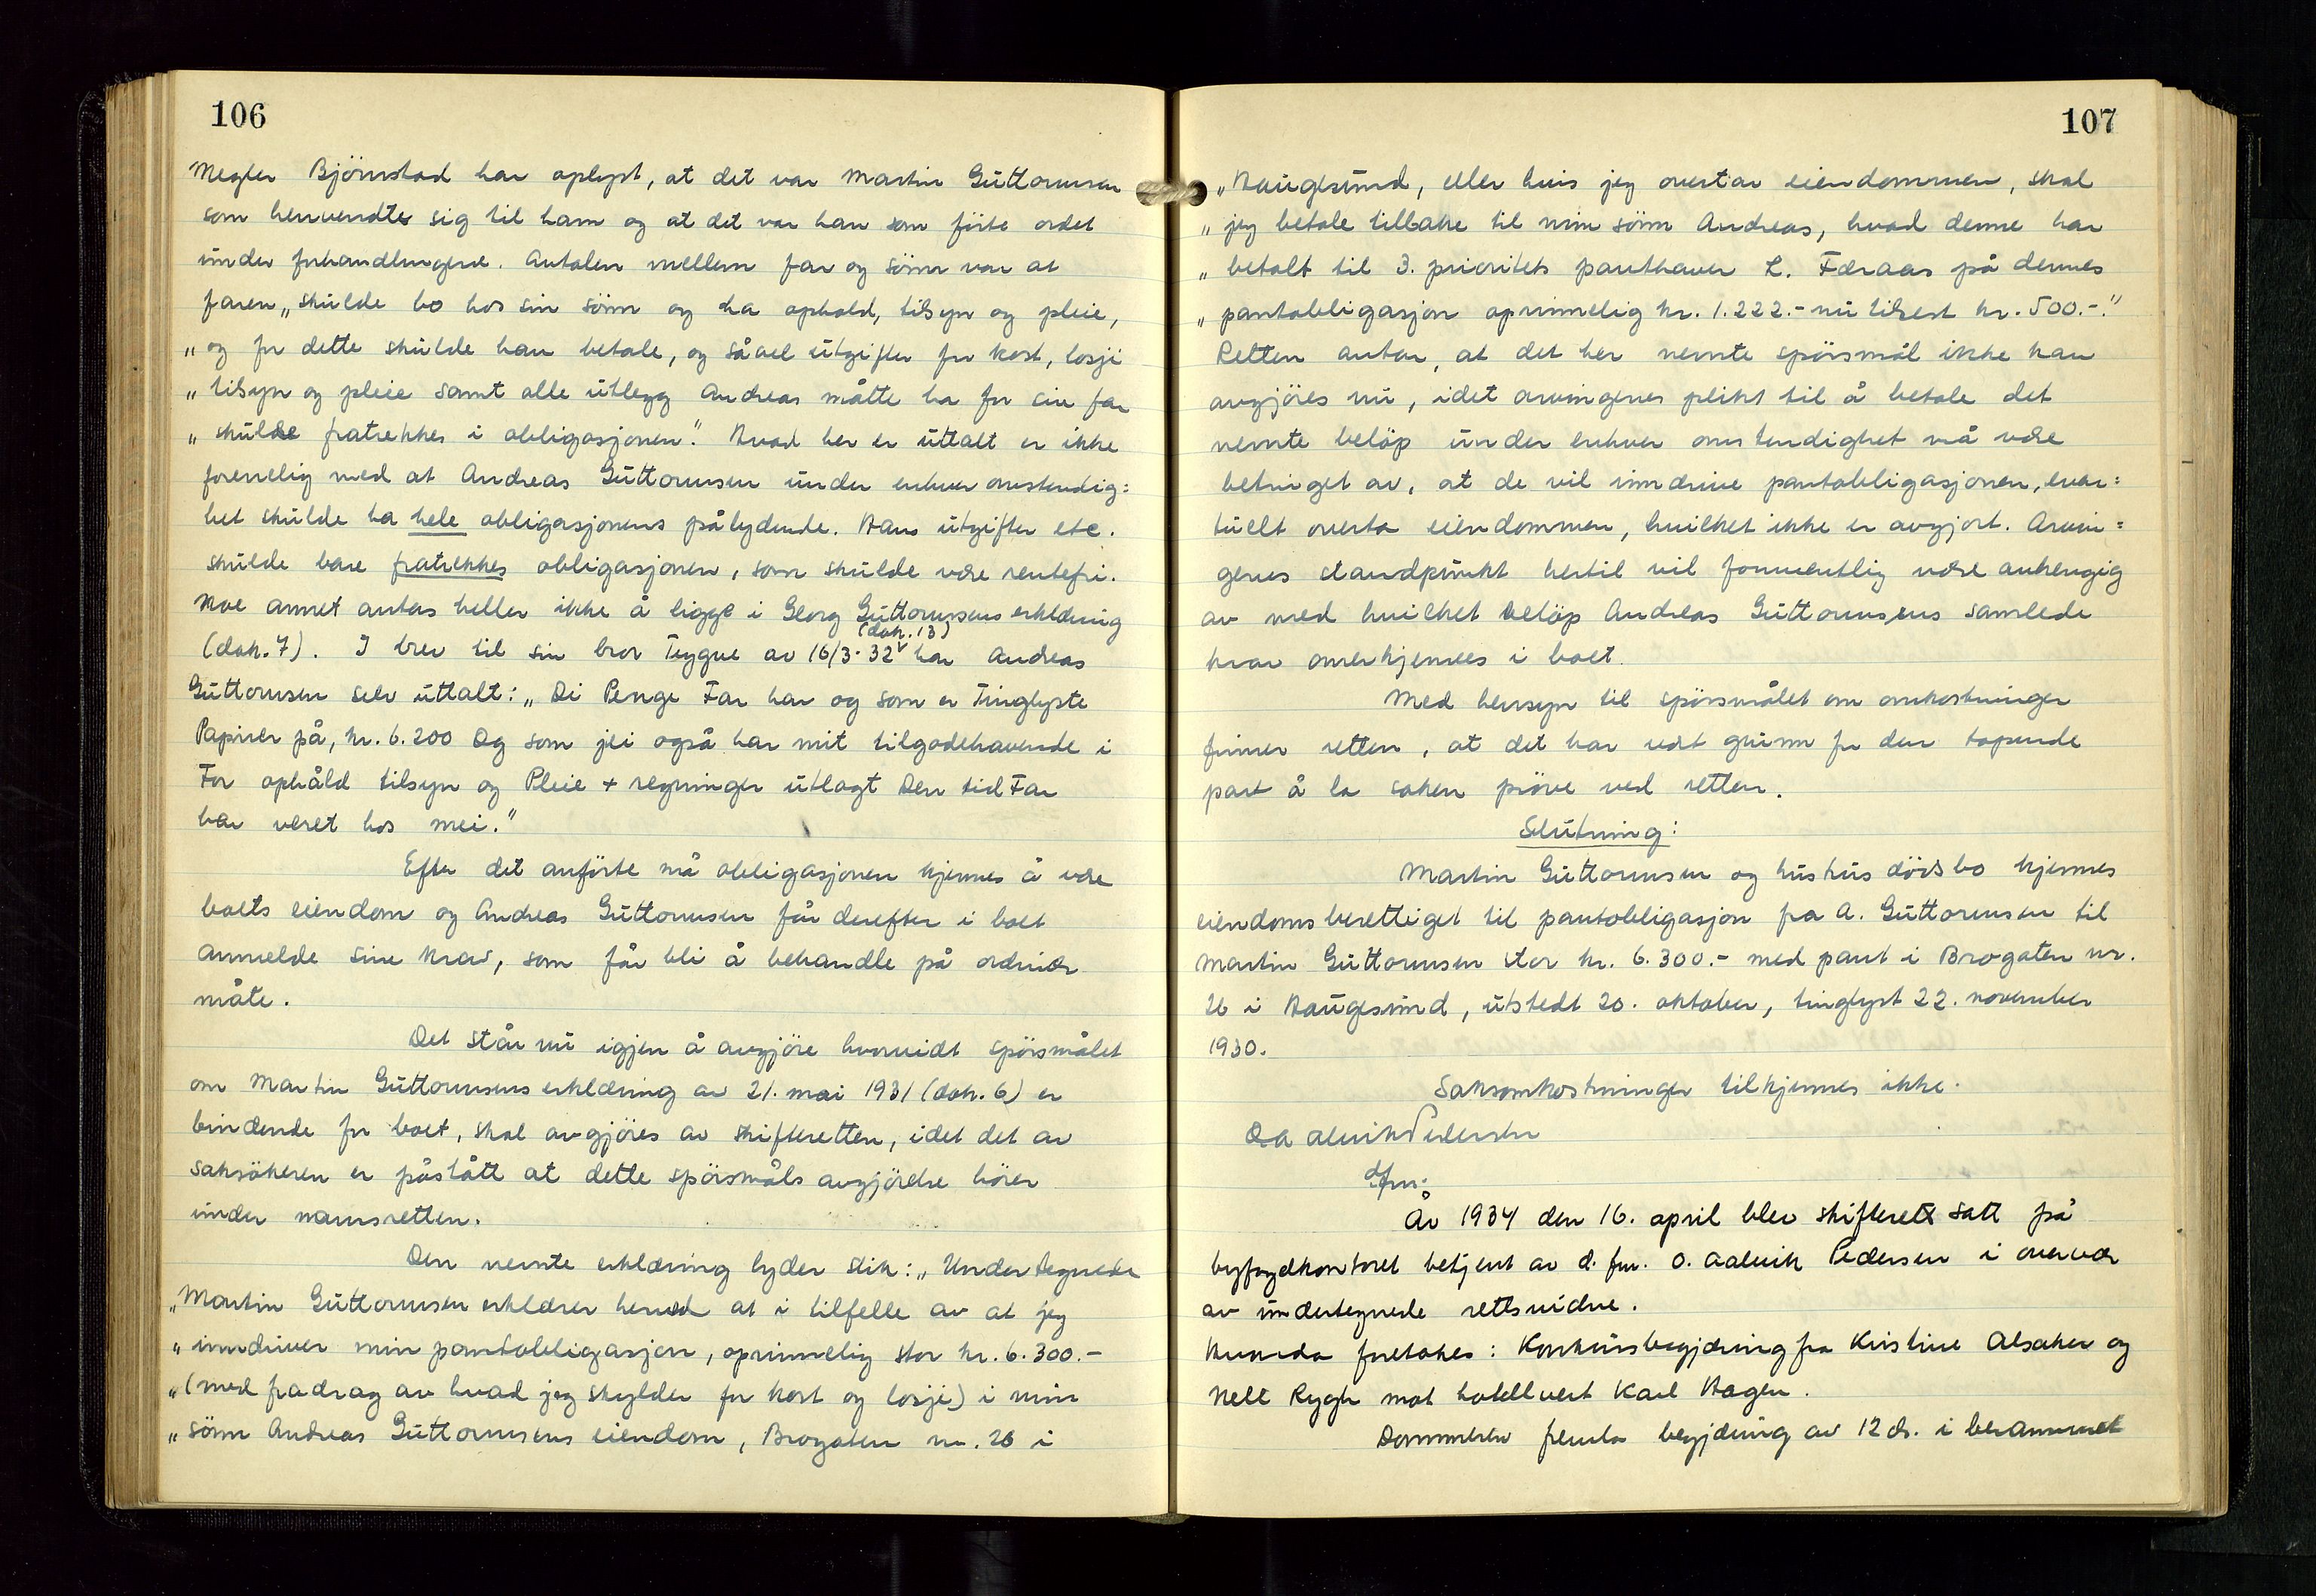 106
Megler Björnstad har oplyst, at det var Martin Guttormsen
som henvendte sig til ham og at det var han som förte ordet
under forhandlingene. Avtalen mellem far og sönn var at
faren „skulde bo hos sin sönn og ha ophold, tilsyn og pleie,
„og for dette skulde han betale, og såvel utgifter for kost, losji
„tilsyn og pleie samt alle utlegg Andreas måtte ha for sin far
„skulde fratrekkes i obligasjonen." Hvad her er uttalt er ikke
forenelig med at Andreas Guttormsen under enhver omstendig:
het skulde ha hele obligasjonens pålydende. Hans utgifter etc.
skulde bare fratrekkes obligasjonen, som skulde være rentefri.
Noe annet antas heller ikke å ligge i Georg Guttormsens erklæring
(dok. 13)
(dok. 7). I brev til sin bror Trygve av 16/3-32 har Andreas
Guttormsen selv uttalt: „Di Penge Far har og som er Tinglyste
Papirer på, kr. 6.200 Og som jei også har mit tilgodehavende i
For ophåld tilsyn og Pleie + regninger utlagt Den tid Far
har været hos mei."
Efter det anförte må obligasjonen kjennes å være
boets eiendom og Andreas Guttormsen får derefter i boet
anmelde sine krav, som får bli å behandle på ordinær
måte.
Det står nu igjen å avgjöre hvorvidt spörsmålet
om Martin Guttormsens erklæring av 21. mai 1931 (dok. 6) er
bindende for boet, skal avgjöres av skifteretten, idet det av
saksökeren er påstått at dette spörsmåls avgjörelse hörer
under namsretten.
Den nevnte erklæring lyder slik: „Undertegnede
„Martin Guttormsen erklærer herved at i tilfelle av at jeg
„inndriver min pantobligasjon, oprinnelig stor kr. 6.300.-
„(med fradrag av hvad jeg skylder for kost og losji) i min
„sönn Andreas Guttormsens eiendom, Brogaten nr. 26 i
107
„Haugesund, eller hvis jeg overtar eiendommen, skal
„jeg betale tilbake til min sönn Andreas, hvad denne har
„betalt til 3. prioritets panthaver L. Færaas på dennes
„pantobligasjon oprinnelig kr. 1.222.- nu tilrest kr. 500.-."
Retten antar, at det her nevnte spörsmål ikke kan
avgjöres nu, idet arvingenes plikt til å betale det
nevnte belöp under enhver omstendighet må være
betinget av, at de vil inndrive pantobligasjonen, even:
tuelt overta eiendommen, hvilket ikke er avgjort. Arvin=
genes standpunkt hertil vil formentlig være avhengig
av med hvilket belöp Andreas Guttormsens samlede
krav anerkjennes i boet.
Med hensyn til spörsmålet om omkostninger
finner retten, at det har vært grunn for den tapende
part å la saken pröve ved retten.
Slutning:
Martin Guttormsen og hustrus dödsbo kjennes
eiendomsberettiget til pantobligasjon fra A. Guttormsen til
Martin Guttormsen stor kr. 6.300.- med pant i Brogaten nr.
26 i Haugesund, utstedt 20. oktober, tinglyst 22. november
1930.
Saksomkostninger tilkjennes ikke.
O Aalvik Pedersen
dfm.
År 1934 den 16. april blev skifterett satt på
byfogdkontoret betjent av d. fm. O. Aalvik Pedersen i overvær
av undertegnede rettsvidne.
Hvorda foretokes: Konkursbegjæring fra Kristine Alsaker og
Nell Rygh mot hotellvert Karl Hagen.
Dommeren fremla begjæring av 12 ds. i berammet